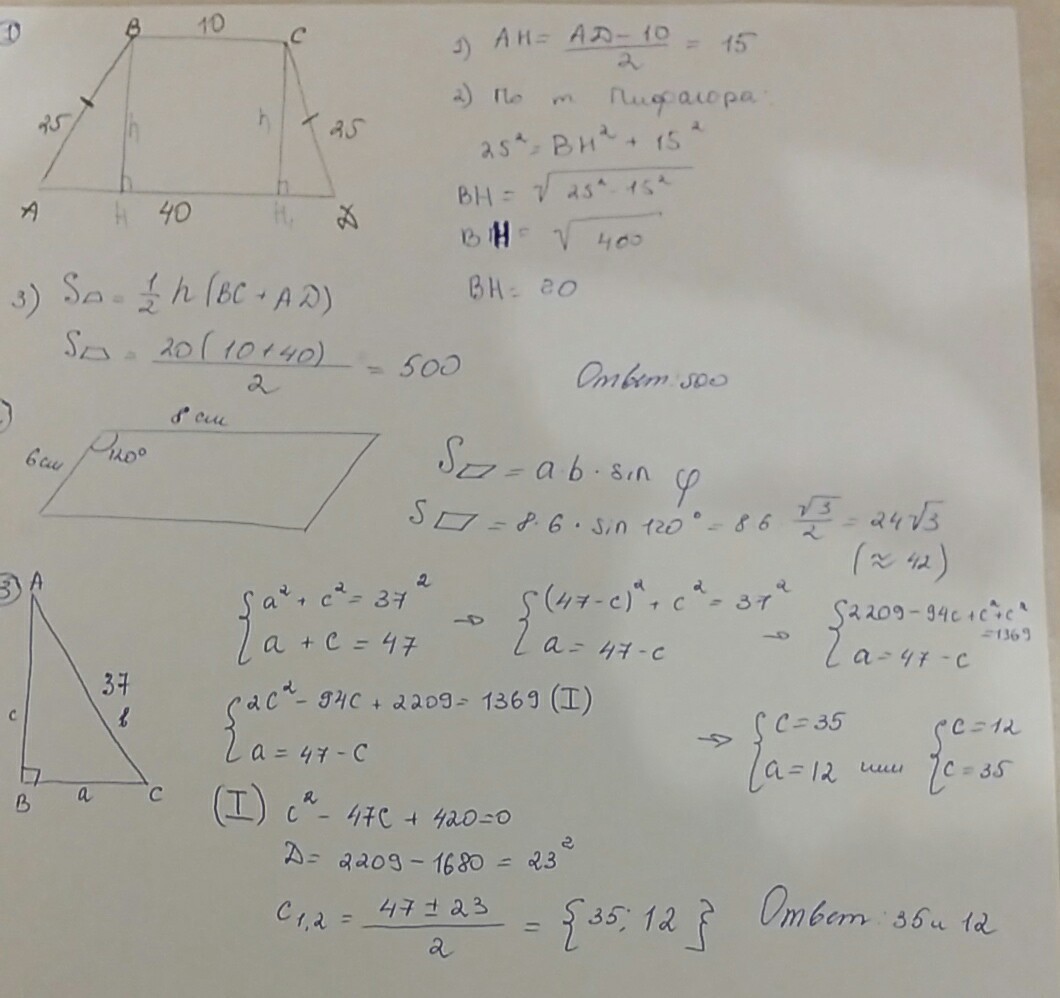 1)
B 10 C
25 h h 25
A H 40 H₁ D
1) AH = (AD - 10)/2 = 15
2) По т Пифагора:
25² = BH² + 15²
BH = √(25² - 15²)
BH = √400
BH = 20
3) S▱ = 1/2 h (BC + AD)
S▱ = 20(10+40)/2 = 500
Ответ: 500
8 см
6 см 120°
S▱ = a b · sin φ
S▱ = 8·6 · sin 120° = 8 6 √3/2 = 24√3
(≈ 42)
3)
A
c 37
b
B a C
{a² + c² = 37² → {(47-c)² + c² = 37² → {2209 - 94c + c² + c² = 1369
{a + c = 47 {a = 47 - c {a = 47 - c
{2c² - 94c + 2209 = 1369 (I)
{a = 47 - c
→ {c = 35 {c = 12
{a = 12 или {c = 35
(I) c² - 47c + 420 = 0
D = 2209 - 1680 = 23²
c₁,₂ = (47 ± 23)/2 = {35; 12} Ответ: 35 и 12